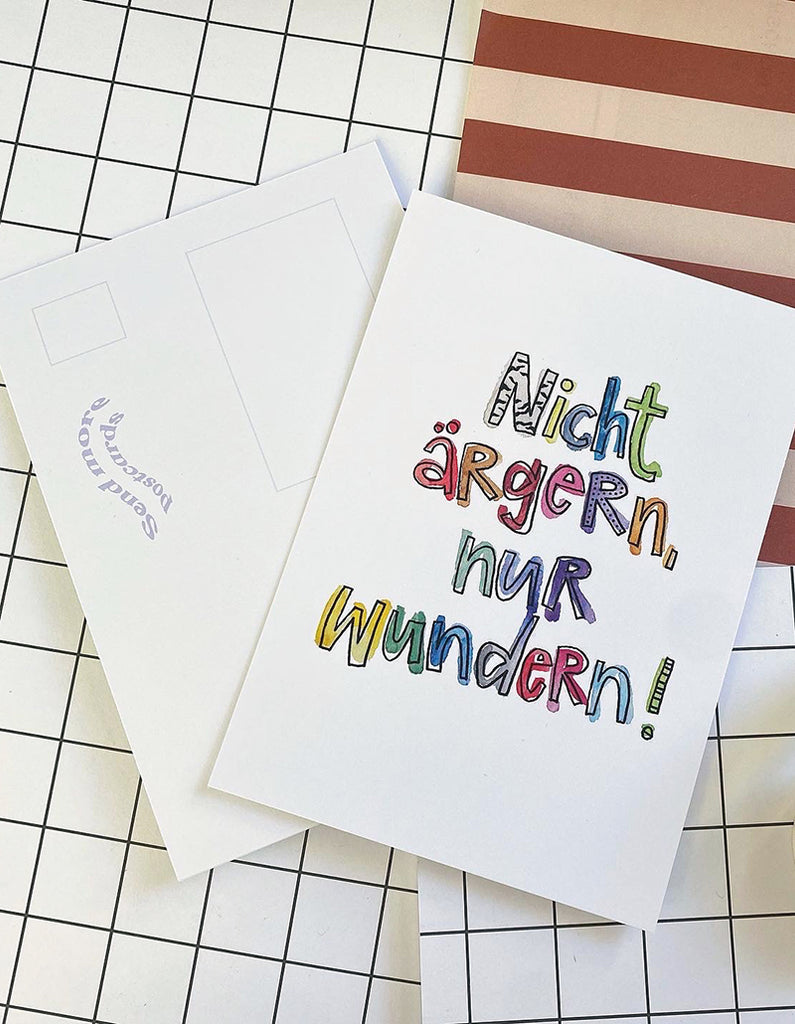 Nicht
ärgern,
nur
wundern!
Send more
postcards